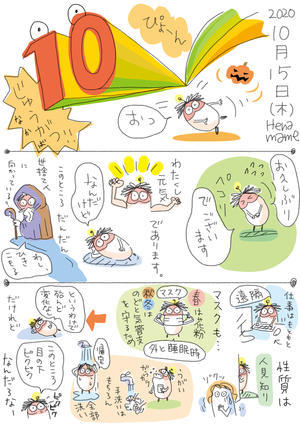 2020
10月
15日
(木)
Hena
mame
10
じゅう
なかばっ
ぴょーん
おっ
お久しぶり
でござい
ます
わたくし
元気
であります。
なんだ
けど
このところ
だんだん
世捨て人に
向かっている
わし
ひき
こもる
仕事はもともと
遠隔
性質は
人見知り
マスクも…
マスク
春は花粉
秋冬は
のどと気管支
を守るため
外と睡眠時
うがい
手洗いは
もちろん
帰宅
全部
洗い
というわけで
殆んど
変化なし
だけれど
このところ
目の下
ピクピク
なんだよな
ピクピク